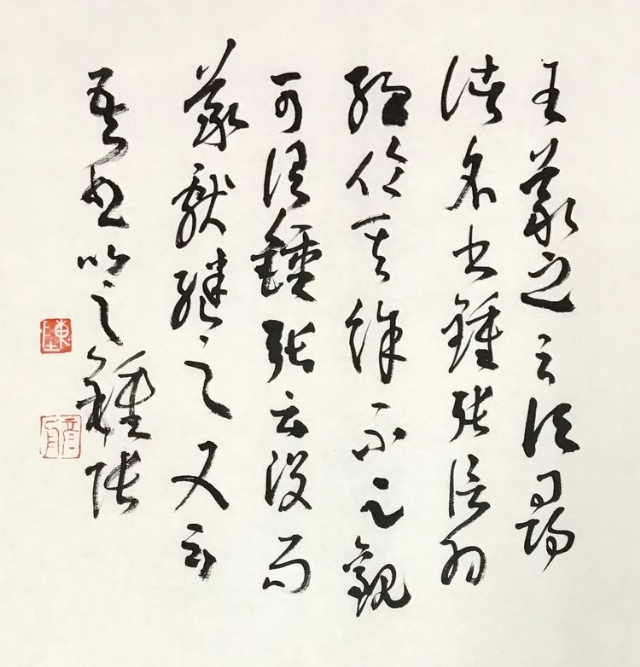 王羲之云頃尋
諸名書鍾張信為
絕倫其餘不足觀
可謂鍾張云沒而
羲獻繼之又云
吾書比之鍾張